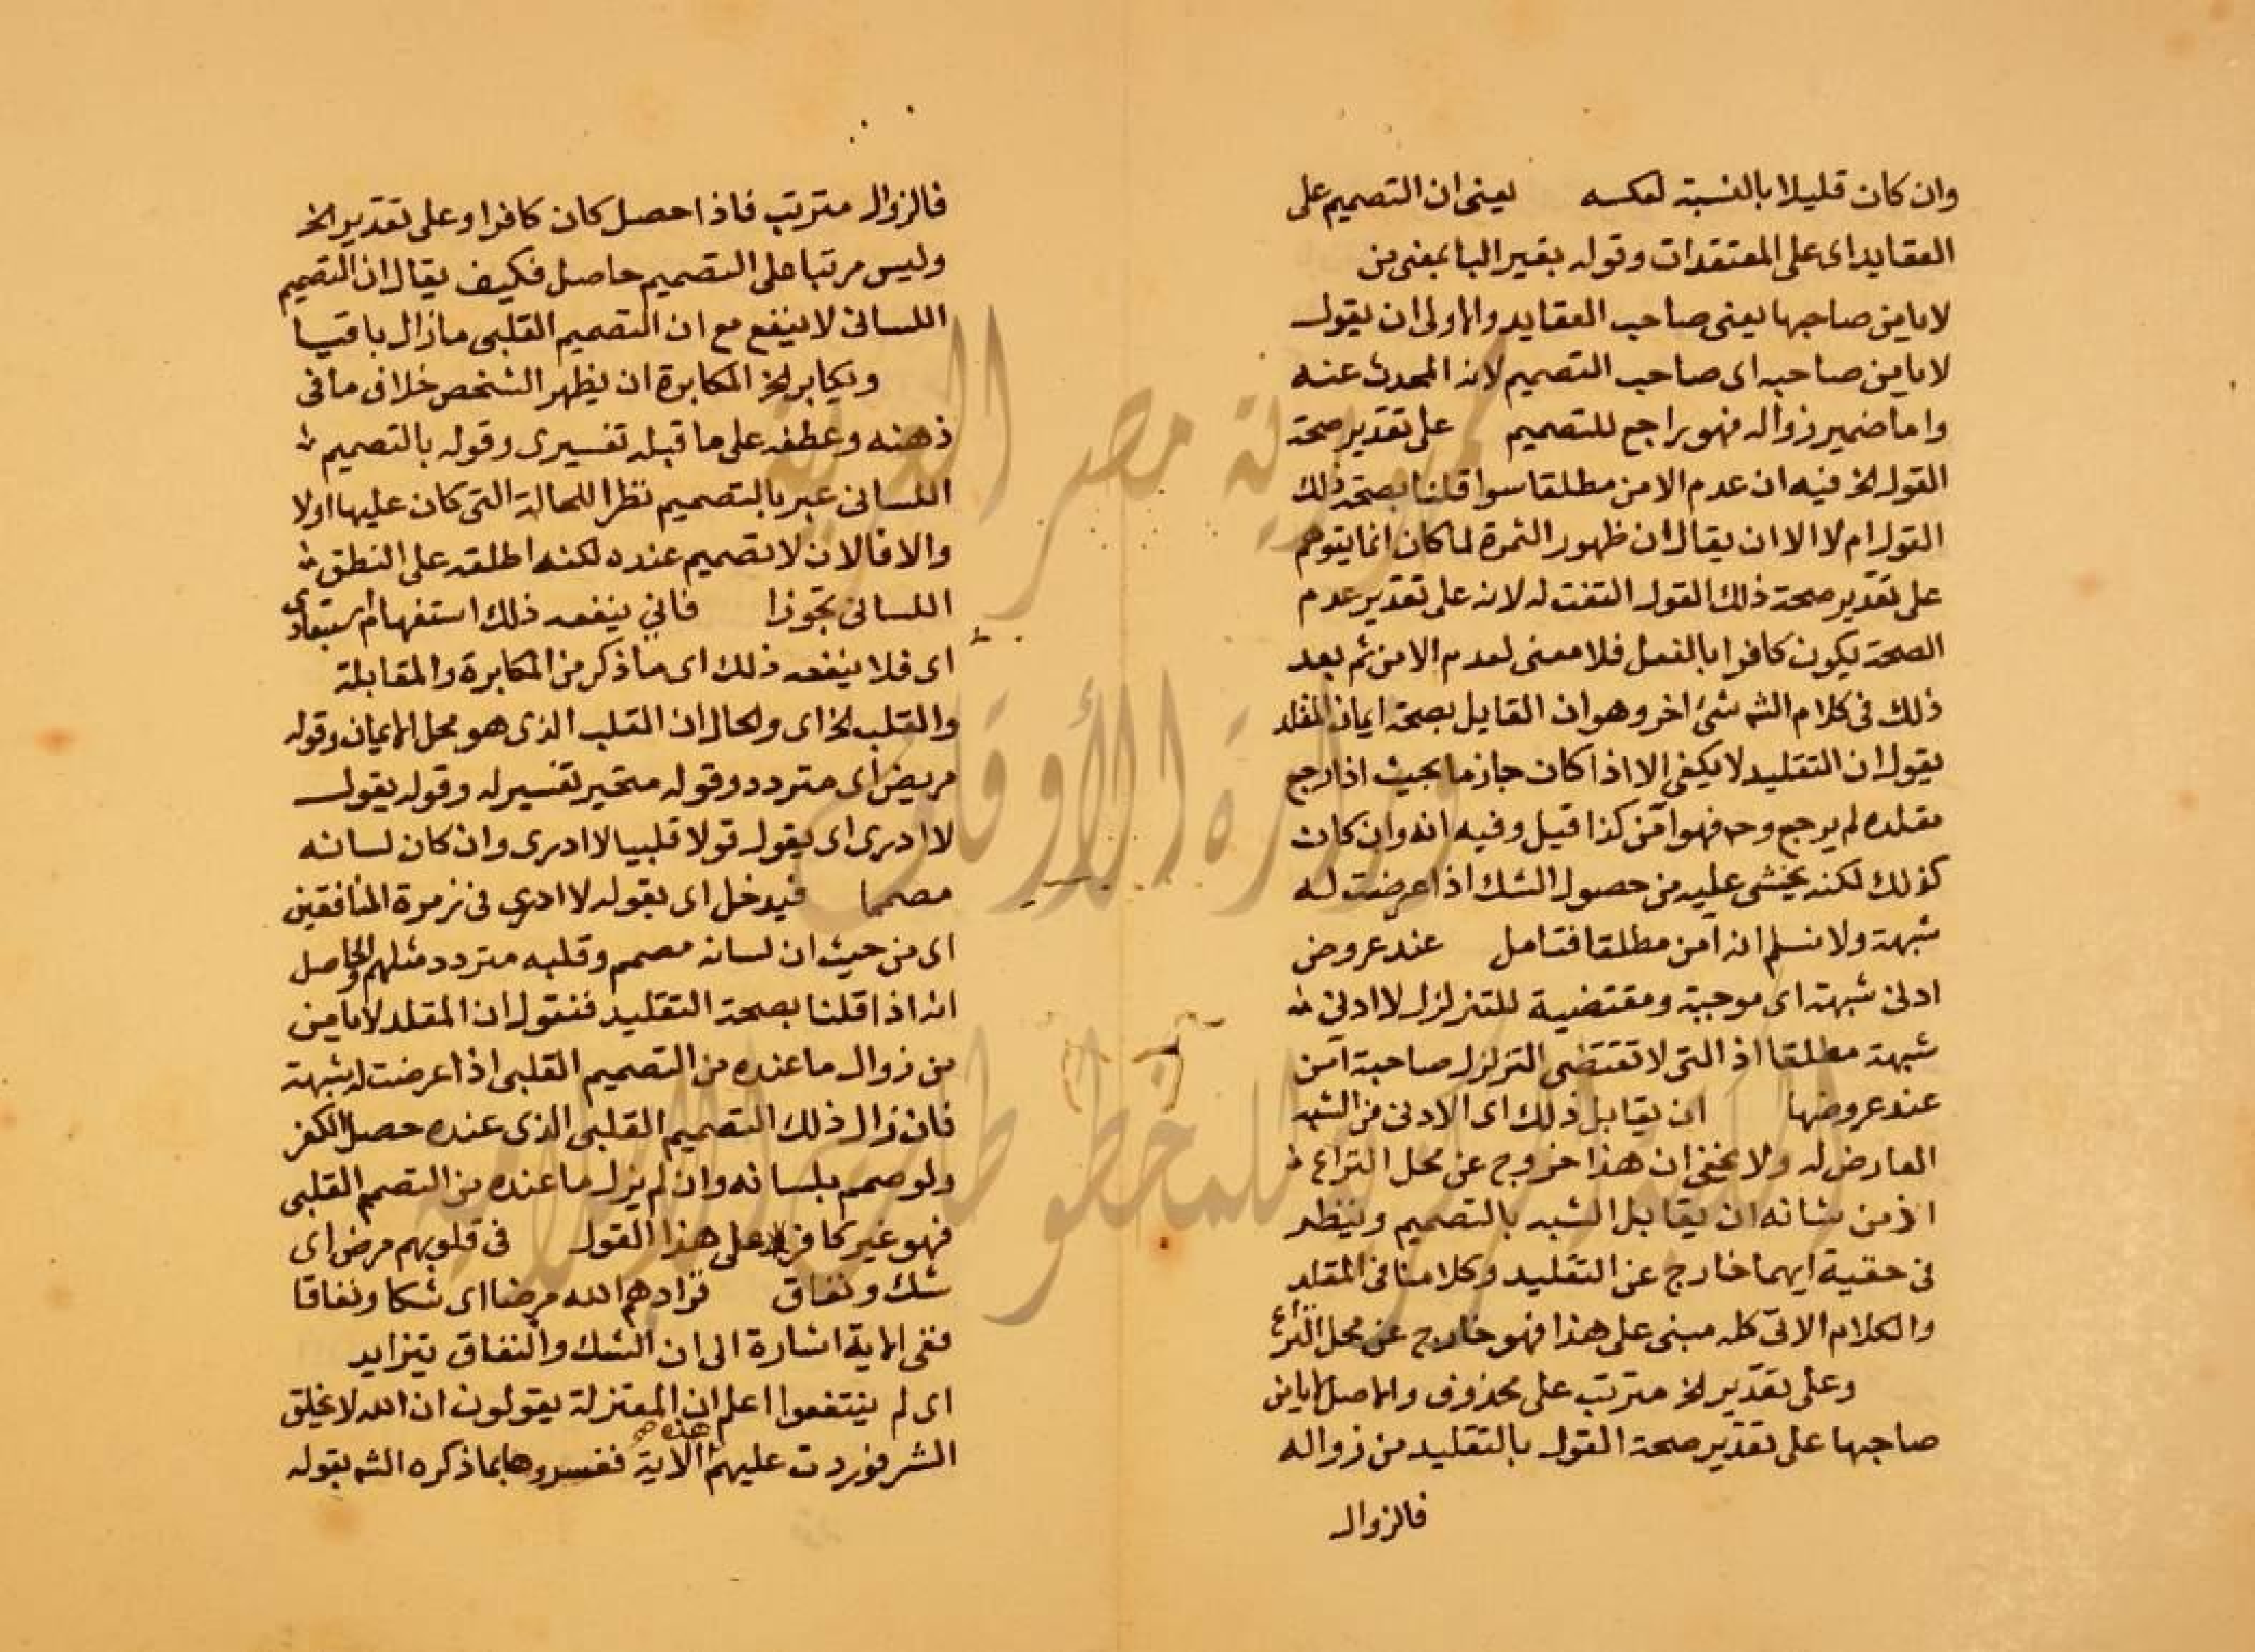 وان كان قليلا بالنسبة لعكسه يعنى ان التصميم على
العقايد اى على المعتقدات وقوله بغير البا بمعنى من
لا يامن صاحبها يعنى صاحب العقايد والاولى ان يقول
لا يامن صاحبه اى صاحب التصميم لانه المحدث عنه
واما ضمير زواله فهو راجع للتصميم على تقدير صحة
القول الخ فيه ان عدم الامن مطلقا سوا قلنا بصحة ذلك
القول ام لا الا ان يقال ان ظهور الثمرة لما كان انما يتوهم
على تقدير صحة ذلك القول التفت له لانه على تقدير عدم
الصحة يكون كافرا بالفعل فلا معنى لعدم الامن ثم بعد
ذلك فى كلام الشه شئ اخر وهو ان القايل بصحة ايمان المقلد
يقول ان التقليد لا يكفى الا اذا كان جازما بحيث اذا رجع
مقلده لم يرجع وحـ فهو آمن كذا قيل وفيه انه وان كان
كذلك لكنه يخشى عليه من حصول الشك اذا عرضت له
شبهة ولا نسلم انه آمن مطلقا فتامل عند عروض
ادنى شبهة اى موجبة ومقتضية للتزلزل لا ادنى
شبهة مطلقا اذ التى لا تقتضى التزلزل صاحبه آمن
عند عروضها ان يقابل ذلك اى الادنى من الشبه
العارض له ولا يخفى ان هذا خروج عن محل النزاع
اذ من شانه ان يقابل الشبه بالتصميم وينظر
فى حقية ايهما خارج عن التقليد وكلامنا فى المقلد
والكلام الاتى كله مبنى على هذا فهو خارج عن محل النزاع
وعلى تقدير الخ مترتب على محذوف والاصل لا يامن
صاحبها على تقدير صحة القول بالتقليد من زواله
فالزوال
فالزوال مترتب فاذا حصل كان كافرا وعلى تقدير الخ
وليس مرتبا على التصميم حاصل فكيف يقال ان التصميم
اللسانى لا ينفع مع ان التصميم القلبى مازال باقيا
ويكابر الخ المكابرة ان يظهر الشخص خلاف ما فى
ذهنه وعطفه على ما قبله تفسيرى وقوله بالتصميم
اللسانى عبر بالتصميم نظرا للحالة التى كان عليها اولا
والا فالان لا تصميم عنده لكنه اطلقه على النطق
اللسانى تجوزا فانى ينفعه ذلك استفهام استبعادى
اى فلا ينفعه ذلك اى ما ذكر من المكابرة والمقابلة
والقلب الخ اى والحال ان القلب الذى هو محل الايمان وقوله
مريض اى متردد وقوله متحير تفسير له وقوله يقول
لا ادرى اى يقول قولا قلبيا لا ادرى وان كان لسانه
مصمما فيدخل اى بقوله لا ادرى فى زمرة المنافقين
اى من حيث ان لسانه مصمم وقلبه متردد مثلهم والحاصل
انه اذا قلنا بصحة التقليد فنقول ان المقلد لا يامن
من زوال ما عنده من التصميم القلبى اذا عرضت له شبهة
فان زال ذلك التصميم القلبى الذى عنده حصل الكفر
ولو صمم بلسانه وان لم يزل ما عنده من التصمم القلبى
فهو غير كافر على هذا القول فى قلوبهم مرض اى
شك ونفاق فزادهم الله مرضا اى شكا ونفاقا
ففى الاية اشارة الى ان الشك والنفاق يتزايد
اى لم ينتفعوا اعلم ان المعتزلة يقولون ان الله لا يخلق
الشر فوردت عليهم هذه الاية ففسروها بما ذكره الشه بقوله
جمهورية مصر العربية
وزارة الأوقاف